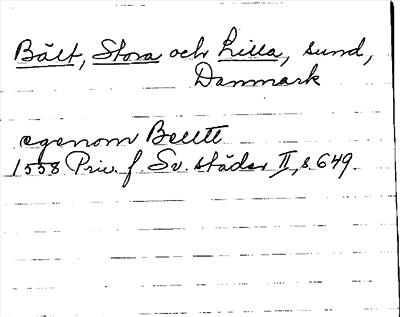 Bält, Stora och Lilla, sund,
Danmark
egenom Beltt
1558 Priv. f. Sv. städer II, s. 649.